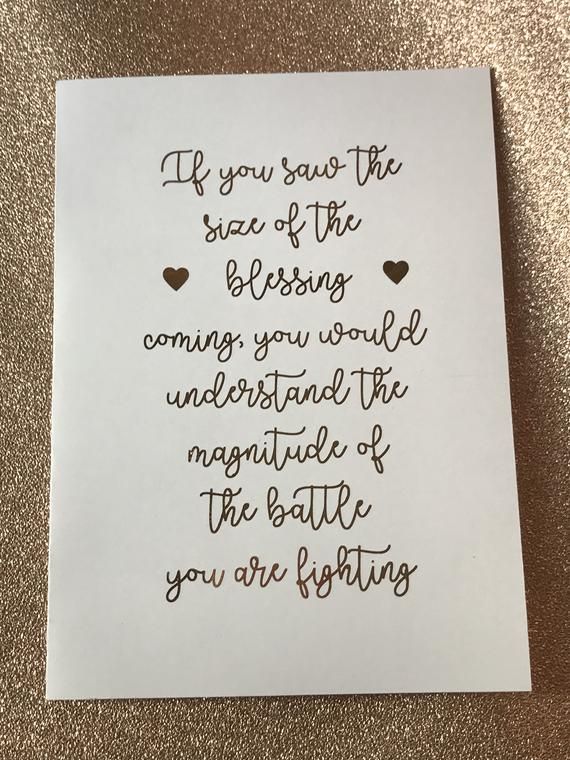 If you saw the
size of the
blessing
coming, you would
understand the
magnitude of
the battle
you are fighting